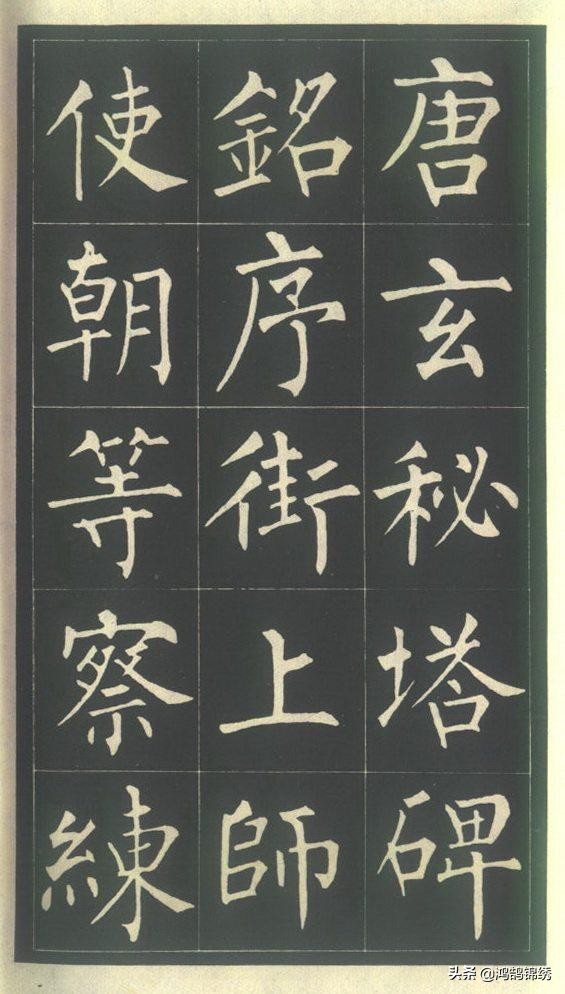 唐玄秘塔碑
銘序街上師
使朝等察練
头条 @鸿鹄锦绣